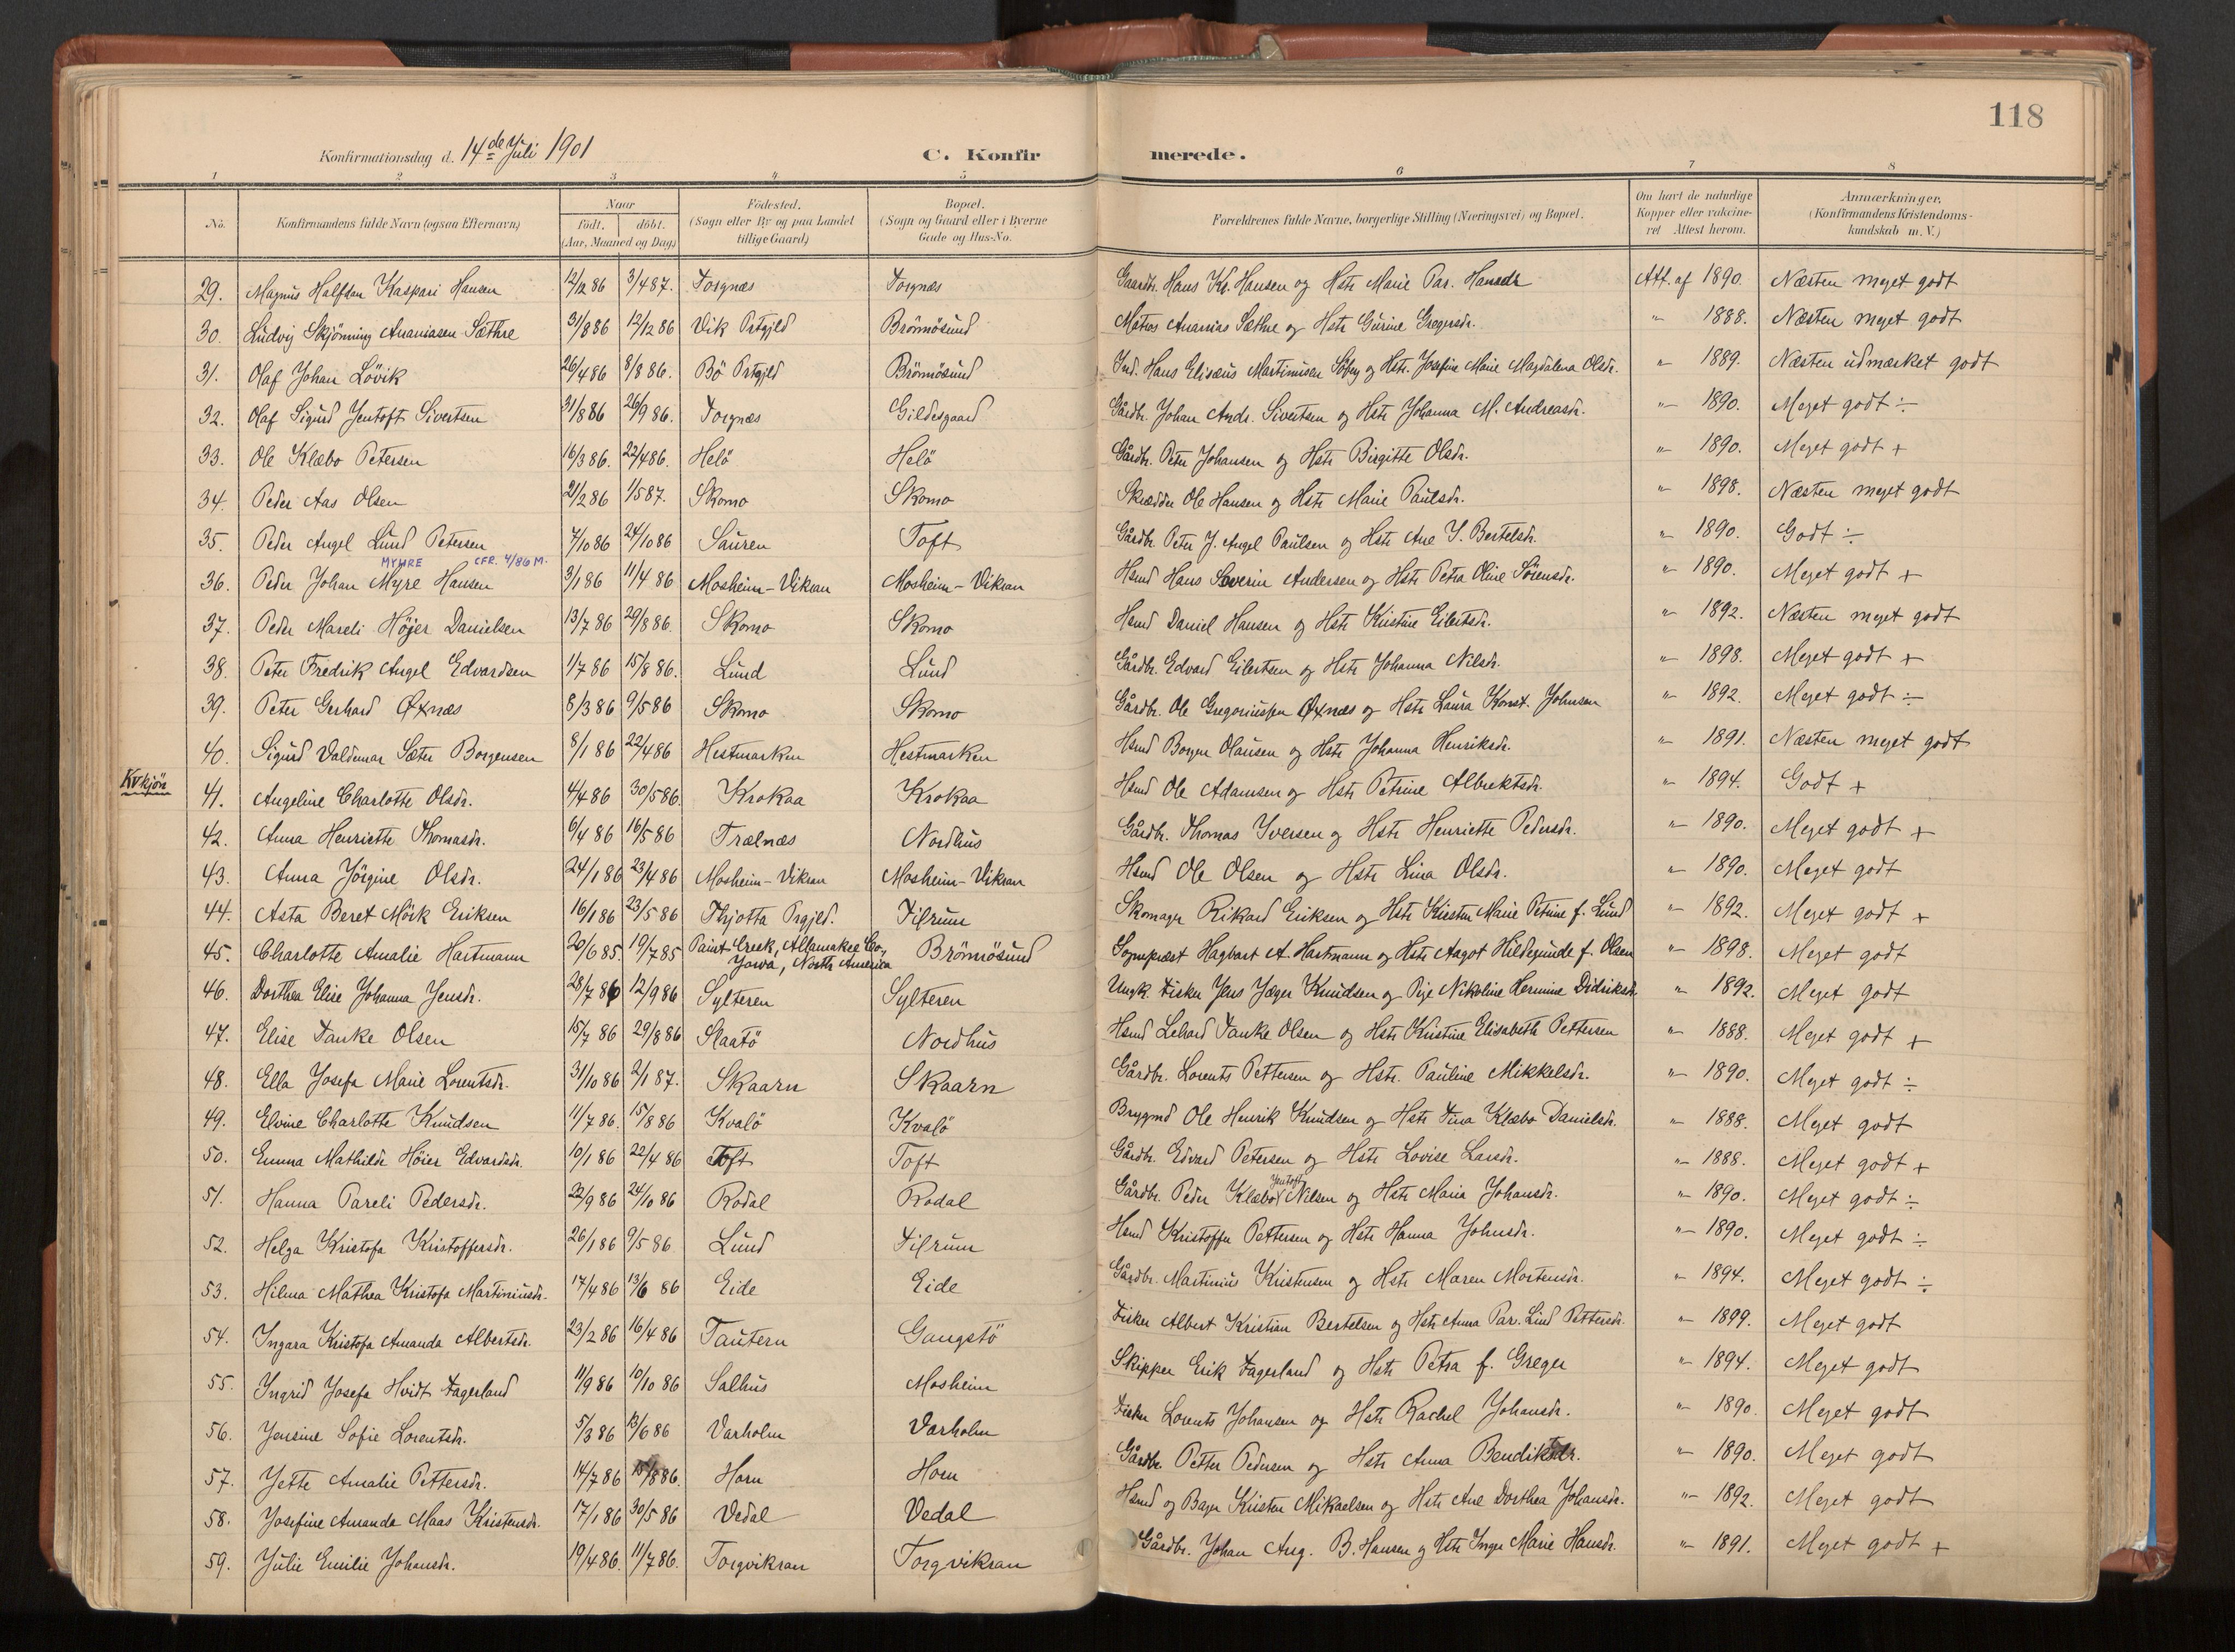 118
Konfirmationsdag d. 14de Juli 1901
C. Konfirmerede.
1 2 3 4 5 6 7 8
No. Konfirmandens fulde Navn (ogsaa Efternavn) Naar födt. döbt. (Aar, Maaned og Dag) Födested. (Sogn eller By og paa Landet tillige Gaard) Bopæl. (Sogn og Gaard eller i Byerne Gade og Hus-No. Forældrenes fulde Navne, borgerlige Stilling (Næringsvei) og Bopæl. Om havt de naturlige Kopper eller vakcineret Attest herom. Anmærkninger, (Konfirmandens Kristendomskundskab m. V.)
29. Magnus Halfdan Kaspari Hansen 12/12 86 3/4 87. Torgnæs Torgnæs Gaardb. Hans Kr. Hansen og Hstr Marie Par. Hansdr Att. af 1890. Næsten meget godt
30. Ludvig Skjönning Ananiasen Sæthre 31/8 86 12/12 86 Vik Prstgjld Brönösund Matros Ananias Sæthre og Hstr Gurine Gregersdr. "- 1888. Næsten meget godt
31. Olaf Johan Lövik 26/4 86 8/8 86. Bö Prstgjld Brönösund Ind. Hans Elisæus Martinusen og Hstr. Josefine Marie Magdalena Olsdr. "- 1889. Næsten udmærket godt
32. Olaf Sigurd Jentoft Sivertsen 31/8 86 26/9 86. Torgnæs Gildesgaard Gårdb. Johan Andr. Sivertsen og Hstr Johanna M. Andreasdr. "- 1890. Meget godt ÷
33. Ole Klæbo Petersen 16/3 86. 22/4 86. Helö Helö Gårdb. Peter Johansen og Hstr Birgitte Olsdr. "- 1890. Meget godt +
34. Peder Aas Olsen 21/2 86 1/5 87. Skomo Skomo Skrædder Ole Hansen og Hstr Marie Paulsdr. "- 1898. Næsten meget godt
35. Peder Angel Lund Petersen 7/10 86 24/10 86 Sauren Toft Gårdb. Peter J. Angel Paulsen og Hstr Ane S. Bertelsdr. "- 1890. Godt ÷
MYHRE CFR. 4/86 M.
36. Peder Johan Myre Hansen 3/1 86 11/4 86 Mosheim-Vikran Mosheim-Vikran Hsmd Hans Severin Andersen og Hstr Petra Oline Sörensdr. "- 1890. Meget godt +
37. Peder Mareli Höjer Danielsen 13/7 86 29/8 86. Skomo Skomo Hsmd Daniel Hansen og Hstr Kristine Eilertsdr. "- 1892. Næsten meget godt
38. Peter Fredrik Angel Edvardsen 1/7 86 15/8 86. Lund Lund Gårdb. Edvard Eilertsen og Hstr Johanna Nilsdr. "- 1898. Meget godt +
39. Peter Gerhard Øxnæs 8/3 86 9/5 86 Skomo Skomo Gårdb. Ole Gregoriussen Øxnæs og Hstr Laura Konst. Johnsen "- 1892. Meget godt ÷
40. Sigurd Valdemar Sæter Borgensen 8/1 86 22/4 86 Hestmarken Hestmarken Hsmd Borgen Olausen og Hstr Johanna Henriksdr. "- 1891. Næsten meget godt
Kvkjön
41. Angeline Charlotte Olsdr. 4/4 86 30/5 86. Krokaa Krokaa Hsmd Ole Adamsen og Hstr Petrine Albrektsdr. "- 1894. Godt +
42. Anna Henriette Thomasdr. 6/4 86 16/5 86 Trælnæs Nordhus Gårdb. Thomas Iversen og Hstr Henriette Pedersdr. "- 1890. Meget godt +
43. Anna Jörgine Olsdr. 24/1 86 23/4 86 Mosheim-Vikran Mosheim-Vikran Hsmd Ole Olsen og Hstr Lina Olsdr. "- 1890. Meget godt
44. Asta Beret Mörk Eriksen 16/1 86 23/5 86 Thjotta Prgjld. Tilrum Skomager Rikard Eriksen og Hstr Kirsten Marie Petrine f. Lund "- 1892. Meget godt +
45. Charlotte Amalie Hartmann 20/6 85. 19/7 85 Paint Creek, Allamakee Co, Jowa, North Amerika Brönösund Sognepræst Hagbart A. Hartmann og Hstr Aagot Hildegunde f. Olsen "- 1898. Meget godt
46. Dorthea Elise Johanna Jensdr. 28/7 86 12/9 86 Sylteren Sylteren Ungk. Fisker Jens Jæger Knudsen og Pige Nikoline Hermine Didriksdr. " 1892. Meget godt
47. Elise Tanke Olsen 15/7 86 29/8 86 Slaatö Nordhus Hsmd Lebard Tanke Olsen og Hstr Kristine Elisabeth Pettersen "- 1888. Meget godt +
48. Ella Josefa Marie Lorentsdr. 31/10 86 2/1 87. Skaarn Skaarn Gårdb. Lorents Pettersen og Hstr. Pauline Mikkelsdr. "- 1890. Meget godt ÷
49. Elvine Charlotte Knudsen 11/7 86. 15/8 86 Kvalö Kvalö Brygmd Ole Henrik Knudsen og Hstr Tina Klæbo Danielsdr. "- 1888. Meget godt
50. Emma Mathilde Höier Edvardsdr. 10/1 86 22/4 86 Toft Toft Gårdb. Edvard Petersen og Hstr Lovise Larsdr. "- 1888. Meget godt +
51. Hanna Pareli Pedersdr. 22/9 86 24/10 86 Rodal Rodal Gårdb. Peder Klæbo Jentoft Nilsen og Hstr Maria Johansdr. "- 1890. Meget godt ÷
52. Helga Kristofa Kristoffersdr. 26/1 86 9/5 86. Lund Tilrum Hsmd Kristoffer Pettersen og Hstr Hanna Johnsdr. "- 1890. Meget godt ÷
53. Hilma Mathea Kristofa Martiniusdr. 17/4 86 13/6 86 Eide Eide Gårdbr. Martinius Kristensen og Hstr Maren Mortensdr. "- 1894. Meget godt ÷
54. Ingara Kristofa Amanda Albertsdr. 23/2 86 16/4 86 Tautern Gangstö Fisker Albert Kristian Bertelsen og Hstr Anna Par. Lind Pettersdr. "- 1899. Meget godt
55. Ingrid Josefa Hvidt Fagerland 11/9 86 10/10 86 Salhus Mosheim Skipper Erik Fagerland og Hstr Petra f. Greger "- 1894. Meget godt
56. Jensine Sofie Lorentsdr. 5/3 86 13/6 86 Varholm Varholm Fisker Lorents Johansen og Hstr Rachel Johansdr. "- 1890. Meget godt
57. Jette Amalie Pettersdr. 14/7 86 15/8 86. Horn Horn Gårdb. Petter Pedersen og Hstr Anna Bendiksdr. "- 1890. Meget godt
58. Josefine Amanda Maas Kristensdr. 17/1 86 30/5 86 Vedal Vedal Hsmd og Bager Kristen Mikaelsen og Hstr Ane Dorthea Johansdr. "- 1892. Meget godt
59. Julie Emilie Johansdr. 19/4 86. 11/7 86. Torgvikran Torgvikran Gårdbr. Johan Aug. B. Hansen og Hstr Inger Marie Hansdr. "- 1891. Meget godt +